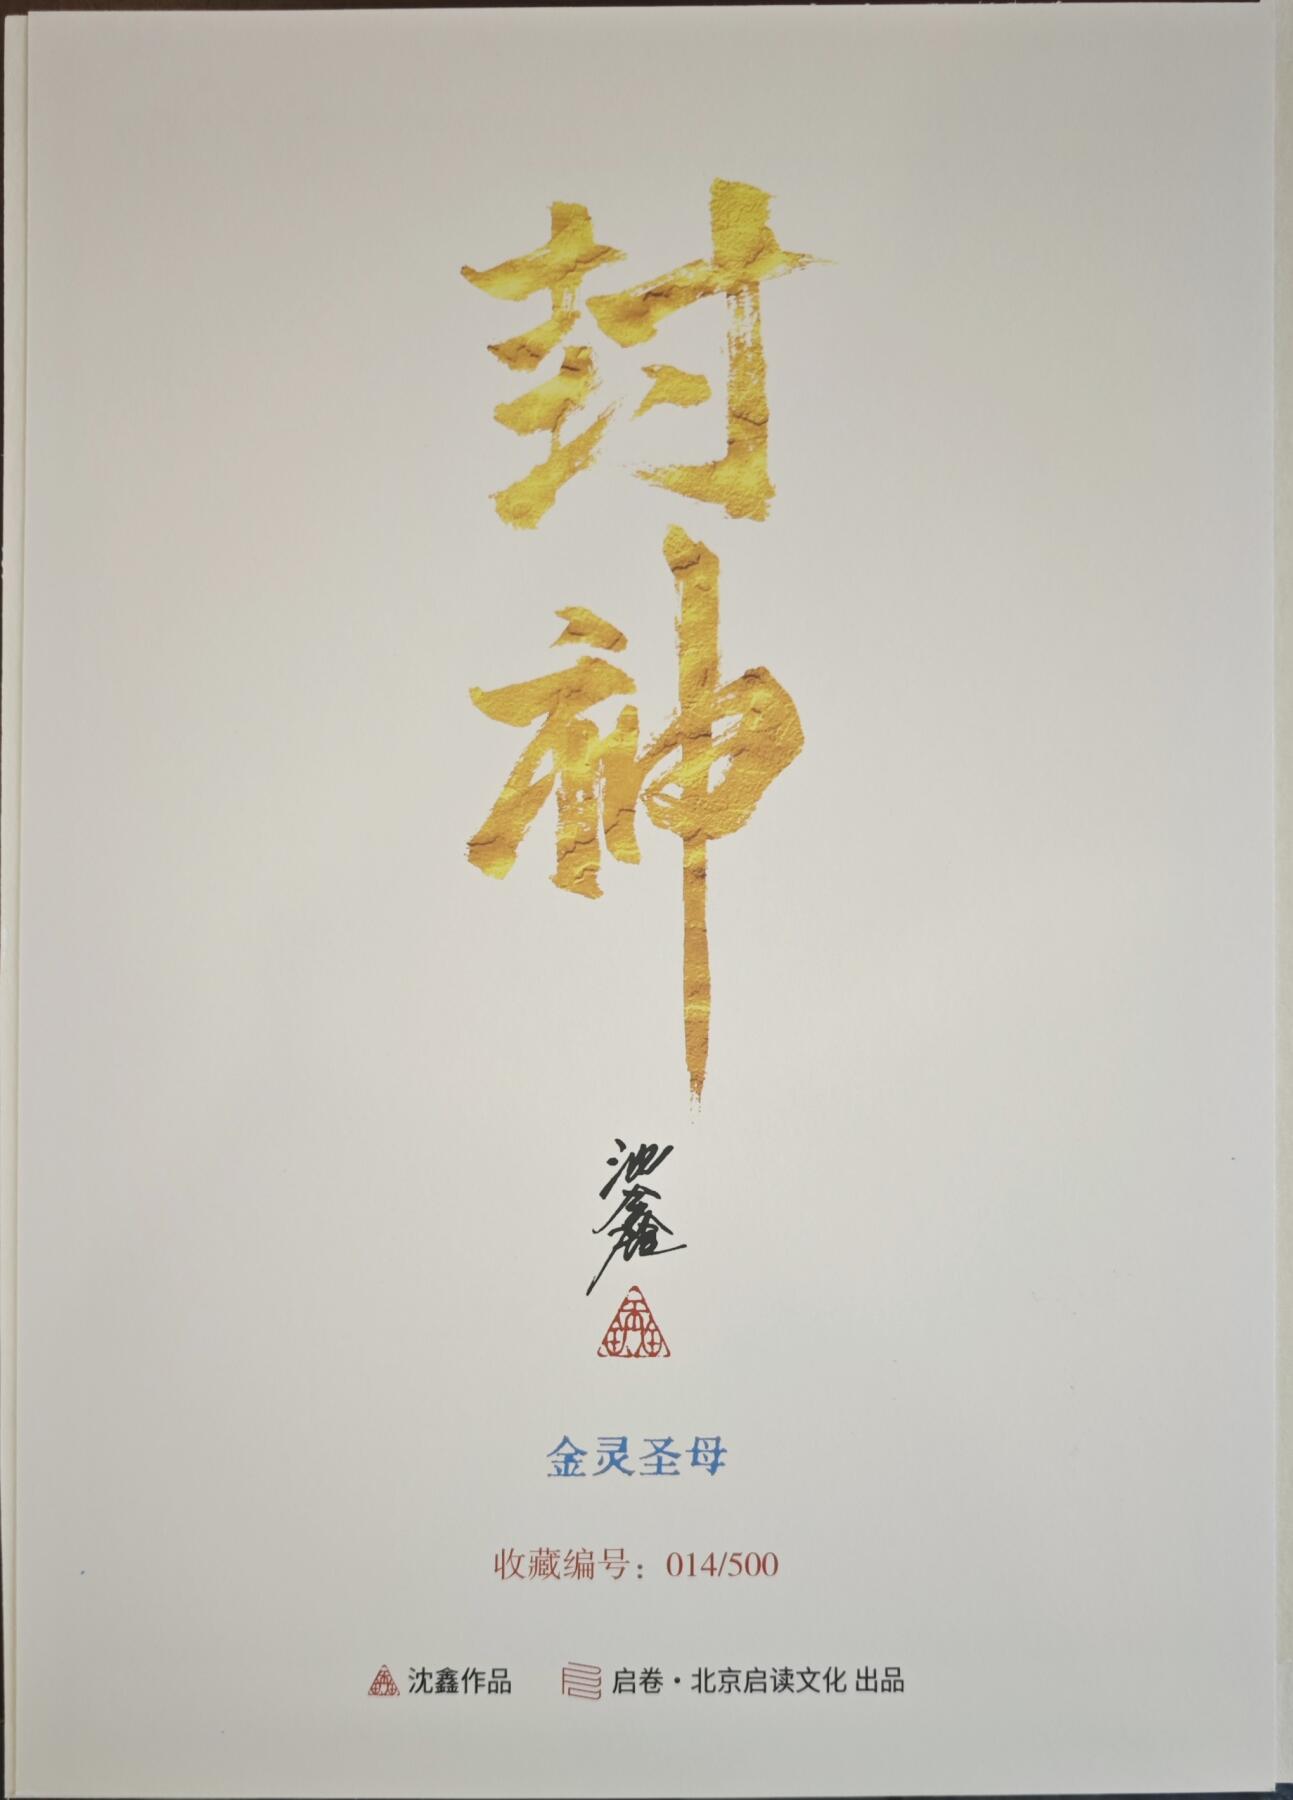 封神
沈鑫
金灵圣母
收藏编号：014/500
沈鑫作品 启卷·北京启读文化 出品